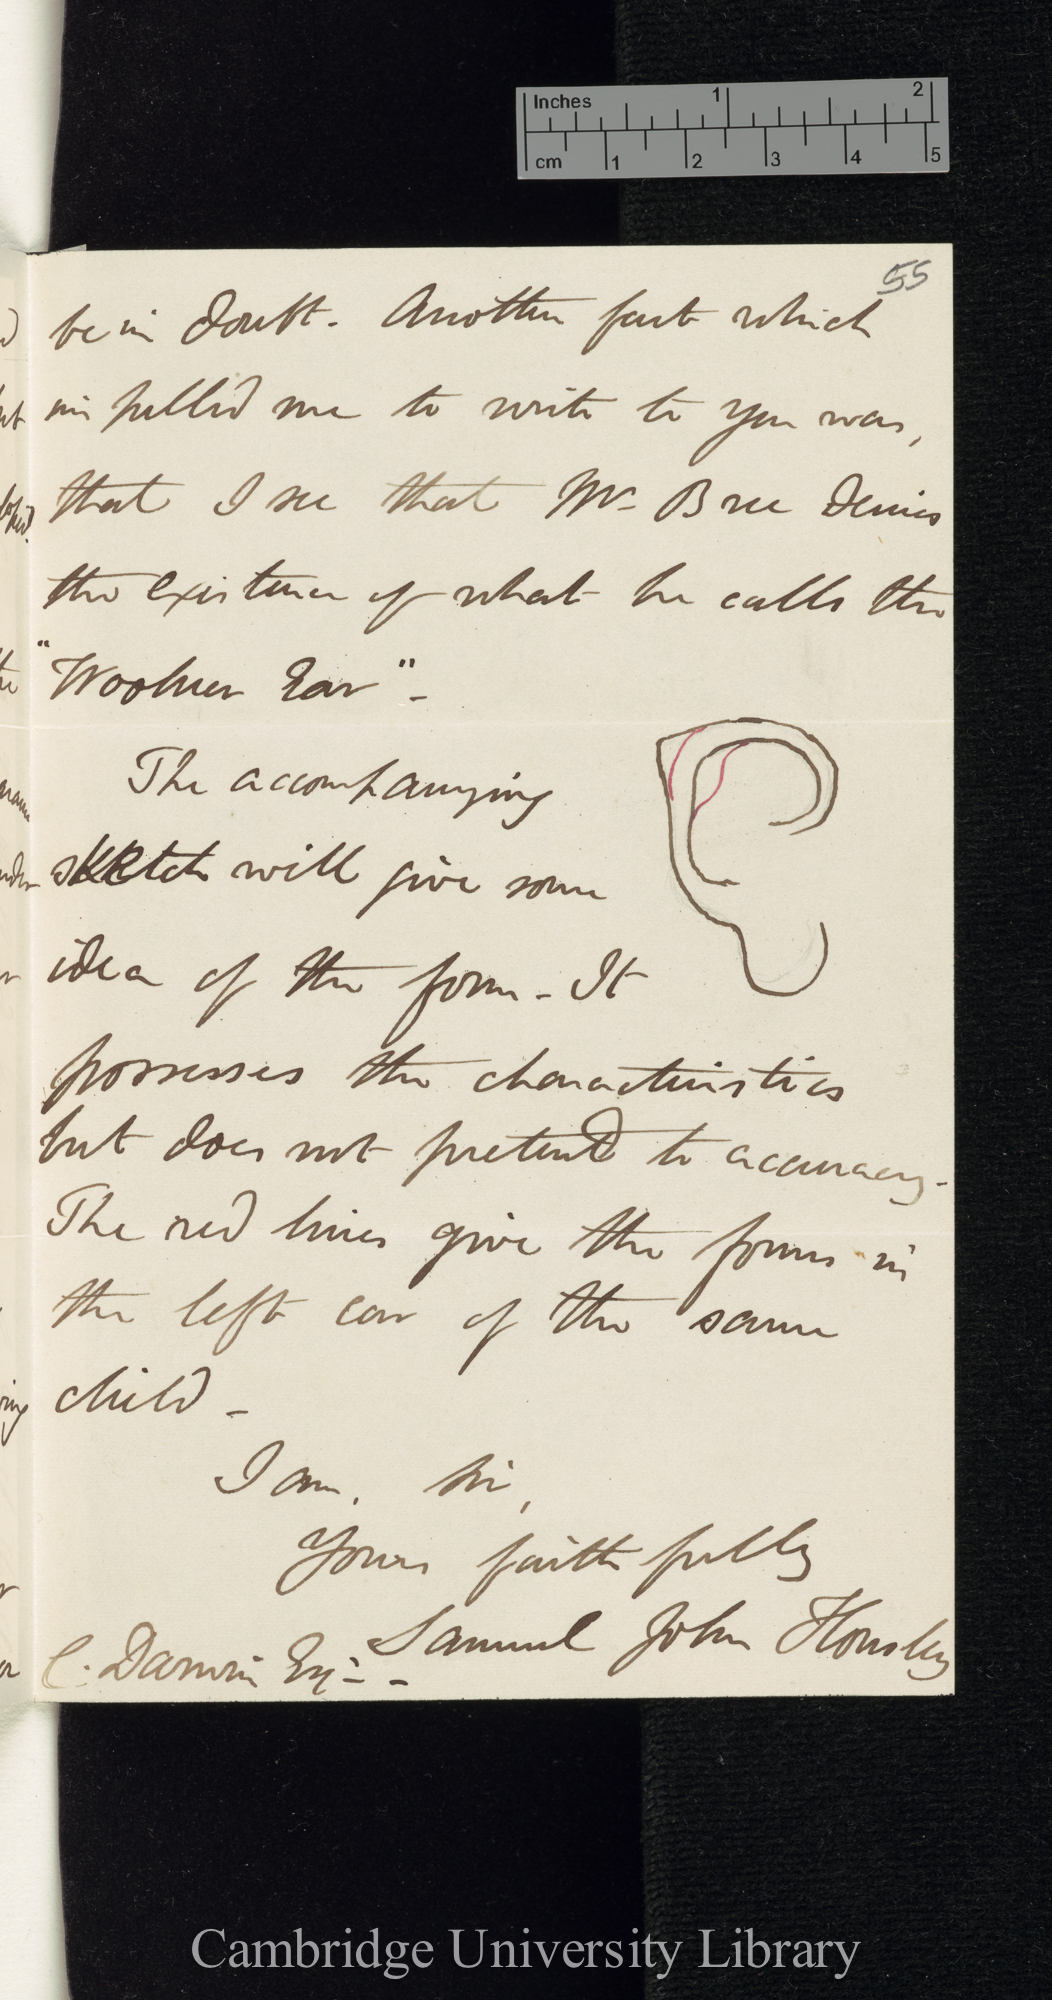 Inches 1 2
cm 1 2 3 4 5
55
be in doubt. Another fact which
impelled me to write to you was,
that I see that Mr. Bree denies
the existence of what he calls the
"Woolner Ear" -
The accompanying
sketch will give some
idea of the form - It
possesses the characteristics
but does not pretend to accuracy -
The red lines give the forms in
the left ear of the same
child -
I am. Sir,
Yours faithfully
Samuel John
C. Darwin Esq: -
Cambridge University Library